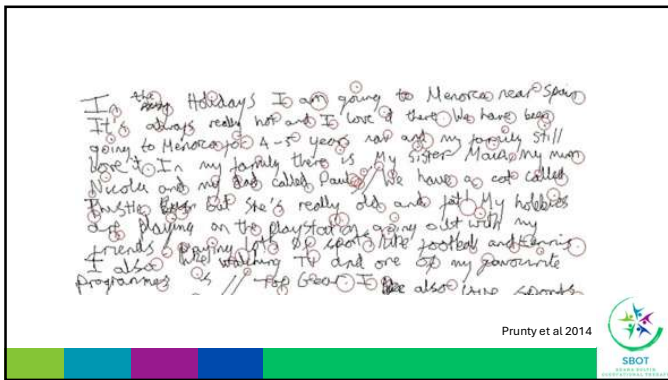 In the Holidays I am going to Menorca near Spain
It's always really hot and I love it there. We have been
going to Menorca for 4-5 years now and my family still
love it. In my family there is My sister Maria, my mum
Nicola and my dad called Paul. We have a cat called
Thistle but she's really old and fat! My hobbies
are playing on the playstation, going out with my
friends, paying lots of sports like football and tennis
I also like watching TV and one of my favourite
programmes is Top Gear. I also like sports
Prunty et al 2014
SBOT